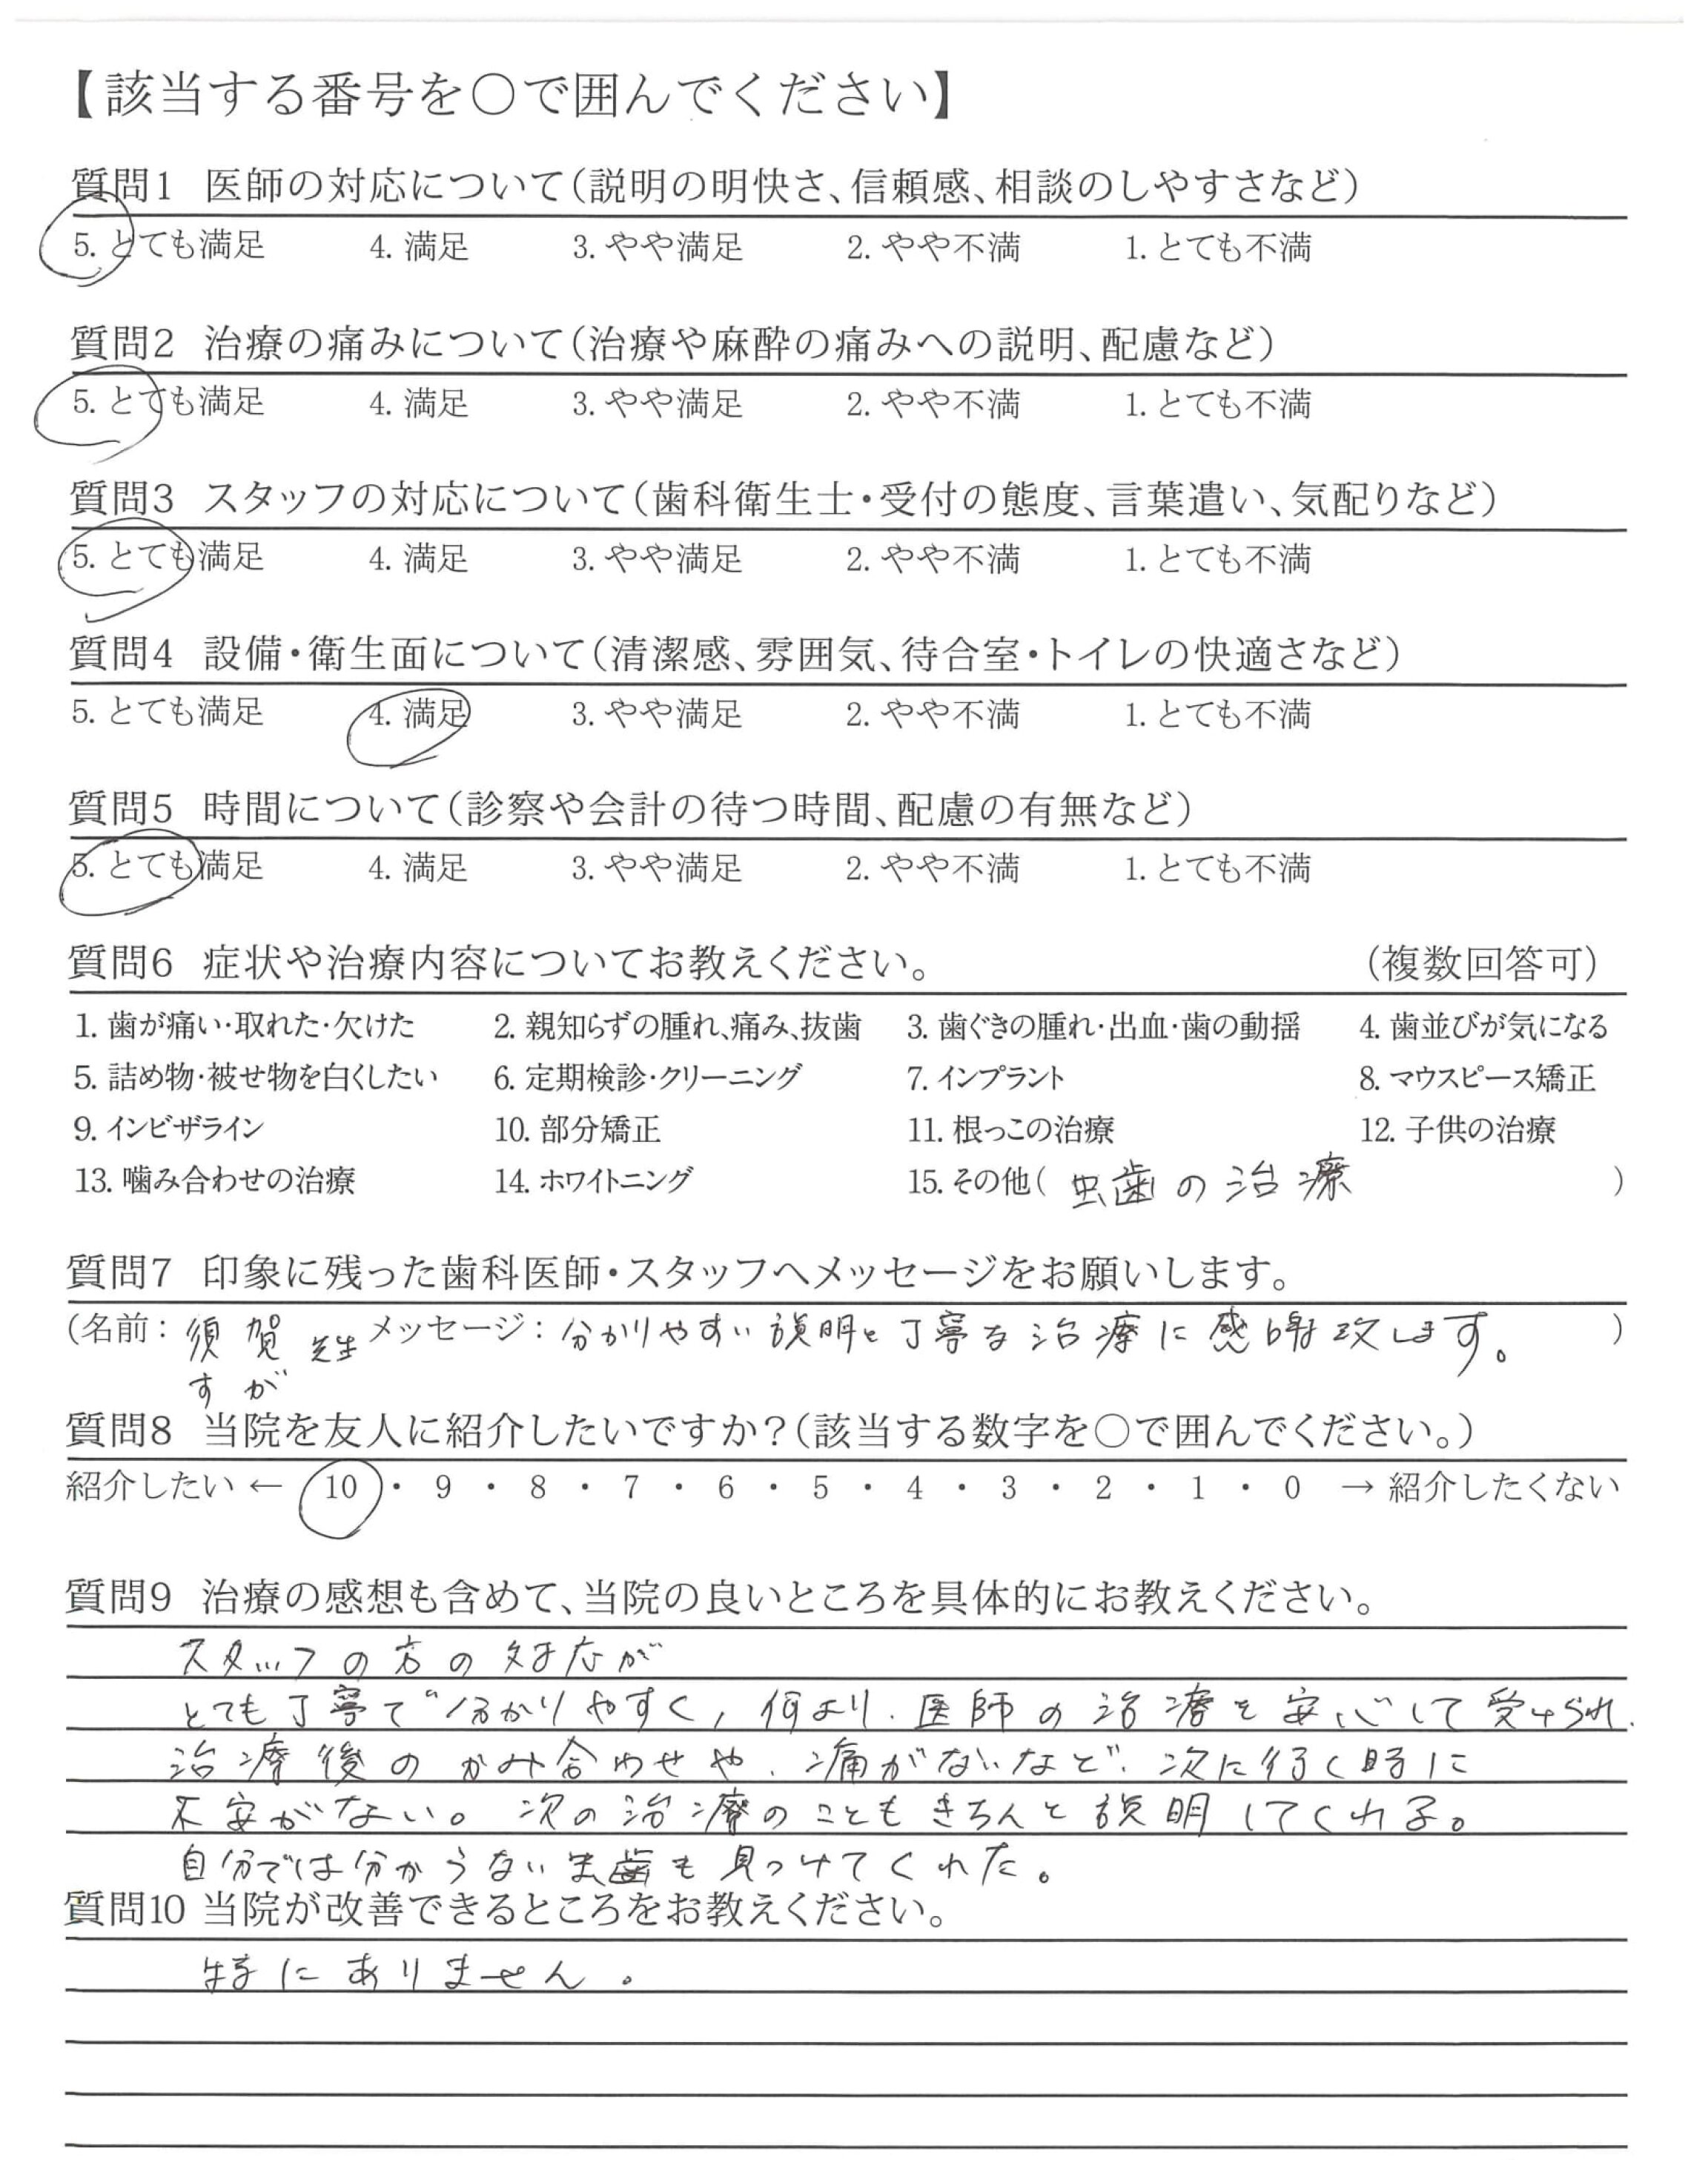 【該当する番号を○で囲んでください】
質問1 医師の対応について(説明の明快さ、信頼感、相談のしやすさなど)
5. とても満足 4. 満足 3. やや満足 2. やや不満 1. とても不満
質問2 治療の痛みについて(治療や麻酔の痛みへの説明、配慮など)
5. とても満足 4. 満足 3. やや満足 2. やや不満 1. とても不満
質問3 スタッフの対応について(歯科衛生士・受付の態度、言葉遣い、気配りなど)
5. とても満足 4. 満足 3. やや満足 2. やや不満 1. とても不満
質問4 設備・衛生面について(清潔感、雰囲気、待合室・トイレの快適さなど)
5. とても満足 4. 満足 3. やや満足 2. やや不満 1. とても不満
質問5 時間について(診察や会計の待つ時間、配慮の有無など)
5. とても満足 4. 満足 3. やや満足 2. やや不満 1. とても不満
質問6 症状や治療内容についてお教えください。 (複数回答可)
1. 歯が痛い・取れた・欠けた 2. 親知らずの腫れ、痛み、抜歯 3. 歯ぐきの腫れ・出血・歯の動揺 4. 歯並びが気になる
5. 詰め物・被せ物を白くしたい 6. 定期検診・クリーニング 7. インプラント 8. マウスピース矯正
9. インビザライン 10. 部分矯正 11. 根っこの治療 12. 子供の治療
13. 噛み合わせの治療 14. ホワイトニング 15. その他( 虫歯の治療 )
質問7 印象に残った歯科医師・スタッフへメッセージをお願いします。
(名前: 須賀 先生 メッセージ: 分かりやすい説明と丁寧な治療に感謝致します。 )
すが
質問8 当院を友人に紹介したいですか?(該当する数字を○で囲んでください。)
紹介したい ← 10 ・ 9 ・ 8 ・ 7 ・ 6 ・ 5 ・ 4 ・ 3 ・ 2 ・ 1 ・ 0 → 紹介したくない
質問9 治療の感想も含めて、当院の良いところを具体的にお教えください。
スタッフの方の対応が
とても丁寧で分かりやすく、何より、医師の治療を安心して受けられ、
治療後のかみ合わせや、痛がないなど、次に行く時に
不安がない。次の治療のこともきちんと説明してくれる。
自分では分からない虫歯も見つけてくれた。
質問10 当院が改善できるところをお教えください。
特にありません。